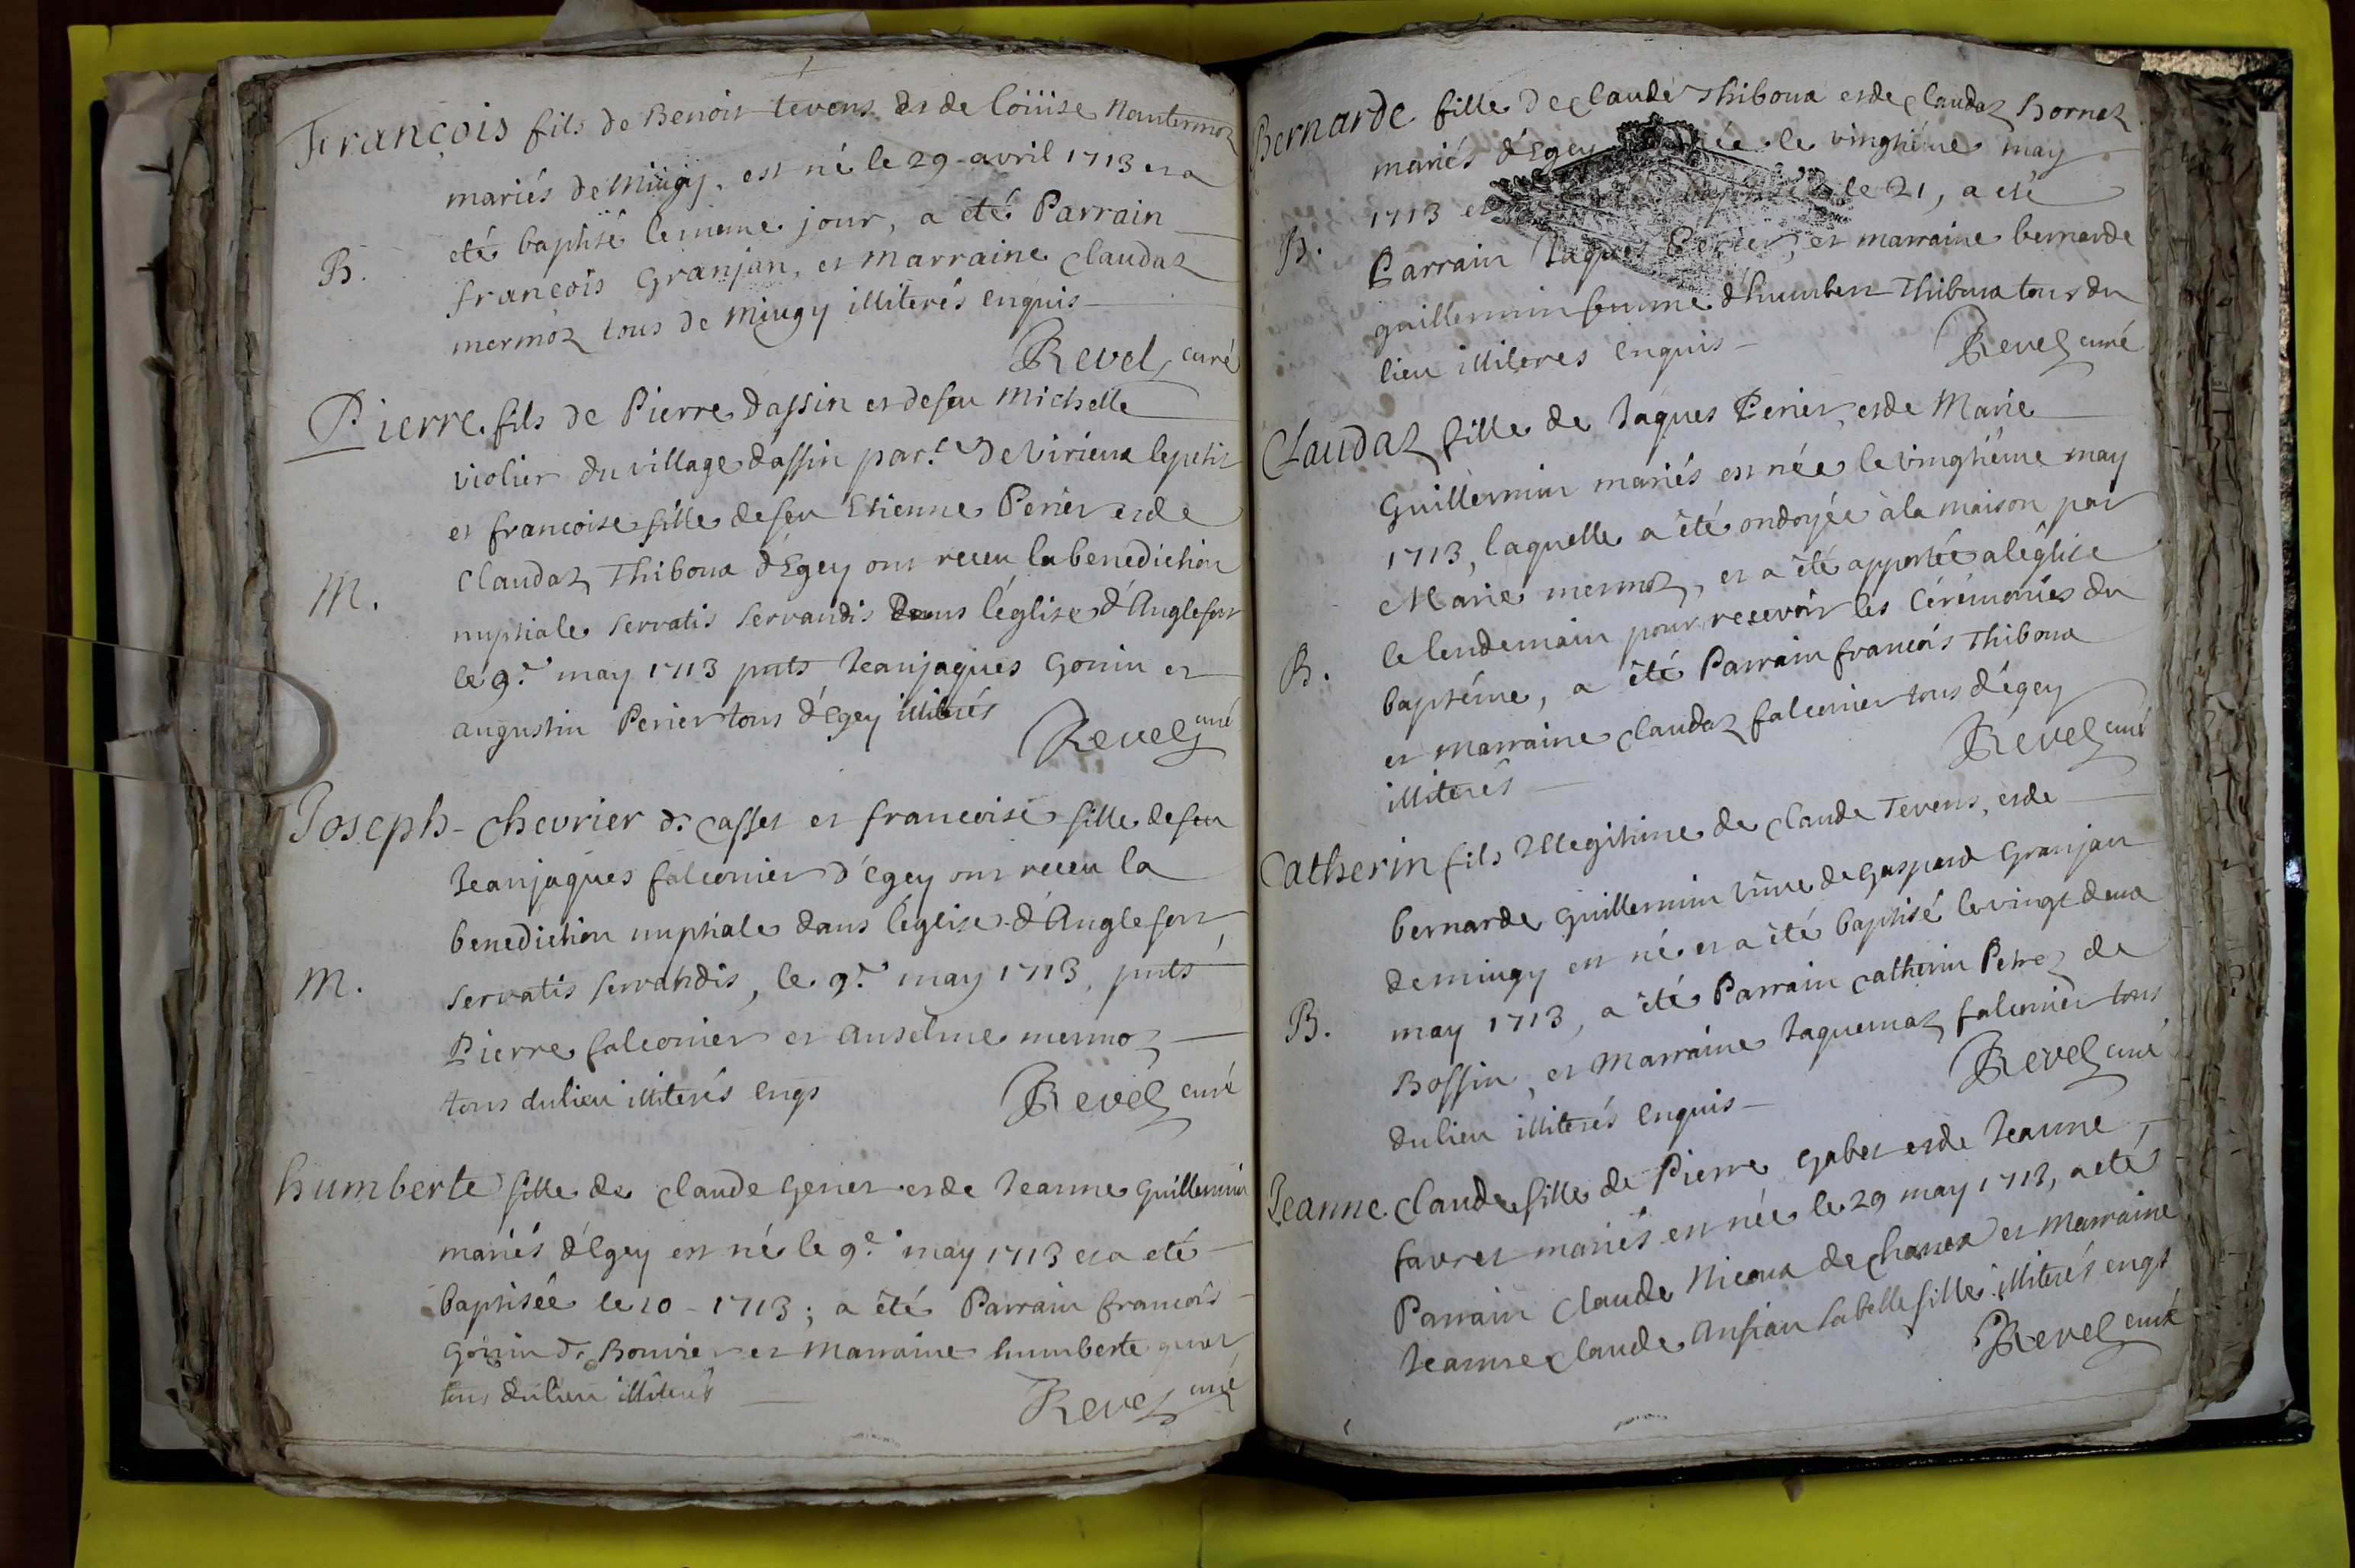 François fils de Benoit tevens et de loüise Nantermoz
mariés de Miugy, est né le 29 avril 1713 et a
B. eté baptisé le meme jour, a été Parrain
francois Granjan, et marraine Claudaz
mermoz tous de Miugy illiterés enquis
Revel, curé
Pierre fils de Pierre dassin et de feu Michelle
violier du village dassin par.e de virieux le petit
et francoise fille de feu Etienne Perier et de
M. Claudaz Thiboux d'Egey ont receu la benediction
nuptiale servatis servandis Dans l'église d'Anglefort
le 9.e may 1713 pnts Jeanjaques Gonin et
augustin Perier tous d'Egey illiterés
Revel curé
Joseph Chevrier d. Casset et francoise fille de feu
Jeanjaques falconier d'Egey ont receu la
benediction nuptiale dans l'église d'Anglefort,
M. servatis servandis, le 9.e may 1713, pnts
Pierre falconier et anselme mermoz
tous du lieu illiterés enqs
Revel curé
humberte fille de Claude Genet et de Jeanne Guillermin
mariés d'Egey est né le 9.e may 1713 et a eté
baptisée le 10 - 1713; a été Parrain francois
Gonin d. Bouvier et Marraine humberte
tous du lieu illiterés
Revel curé
Bernarde fille de Claude Thiboux et de Claudaz Bornet
mariés d'Egey née le vingtiéme may
B. 1713 et le 21, a eté
Parrain Jaques Perier, et marraine bernarde
guillermin femme d'humbert Thiboux tous du
lieu illiteres enquis
Revel curé
Claudaz fille de Jaques Perier, et de Marie
Guillermin mariés est née le vingtiéme may
1713, laquelle a été ondoyée à la maison par
Marie mermoz, et a été apportée a l'église
B. le lendemain pour recevoir les Cérémonies du
baptéme, a été Parrain francois Thiboux
et Marraine Claudaz falconier tous d'égey
illiterés
Revel curé
Catherin fils Illegitime de Claude Tevens, et de
bernarde Guillermin vüve de Gaspard Granjan
de miugy est né et a été baptisé le vingt deux
B. may 1713, a été Parrain Catherin Petrez de
Bossin, et Marraine Jaquemaz falconier tous
du lieu illiterés enquis
Revel curé
Jeanne Claude fille de Pierre Gabet et de Jeanne
favret mariés est née le 29 may 1713, a eté
Parrain Claude Nicoux de et Marraine
Jeanne Claude fille illiterés enqs
Revel curé